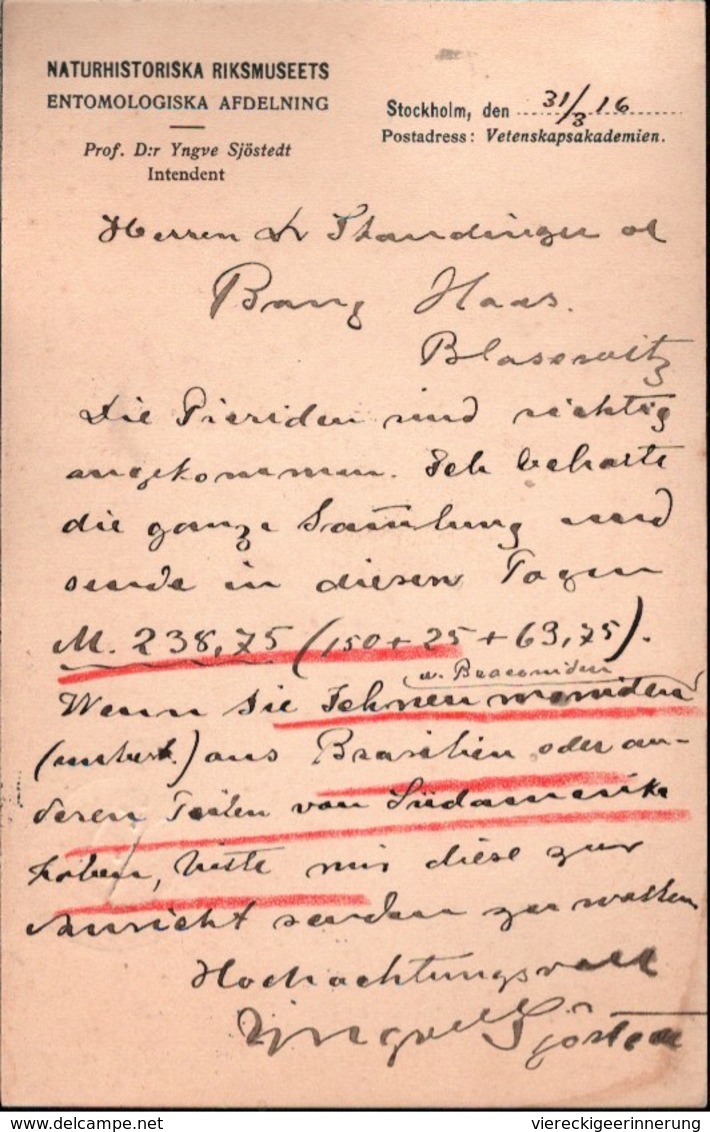 NATURHISTORISKA RIKSMUSEETS
ENTOMOLOGISKA AFDELNING
Prof. D:r Yngve Sjöstedt
Intendent
Stockholm, den 31/3 16
Postadress: Vetenskapsakademien.
Herren Dr Staudinger od
Bang Haas.
Blasewitz
Die Pieriden sind richtig
angekommen. Ich behalte
die ganze Samlung und
sende in diesen Tagen
M. 238,75 (150 + 25 + 63,75).
u. Braconiden
Wenn Sie Ichneumoniden
(unbest.) aus Brasilien oder an-
deren Teilen von Südamerika
haben, bitte mir diese zur
Ansicht senden zu wollen
Hochachtungsvoll
Yngve Sjöstedt
delcampe.net
viereckigeerinnerung